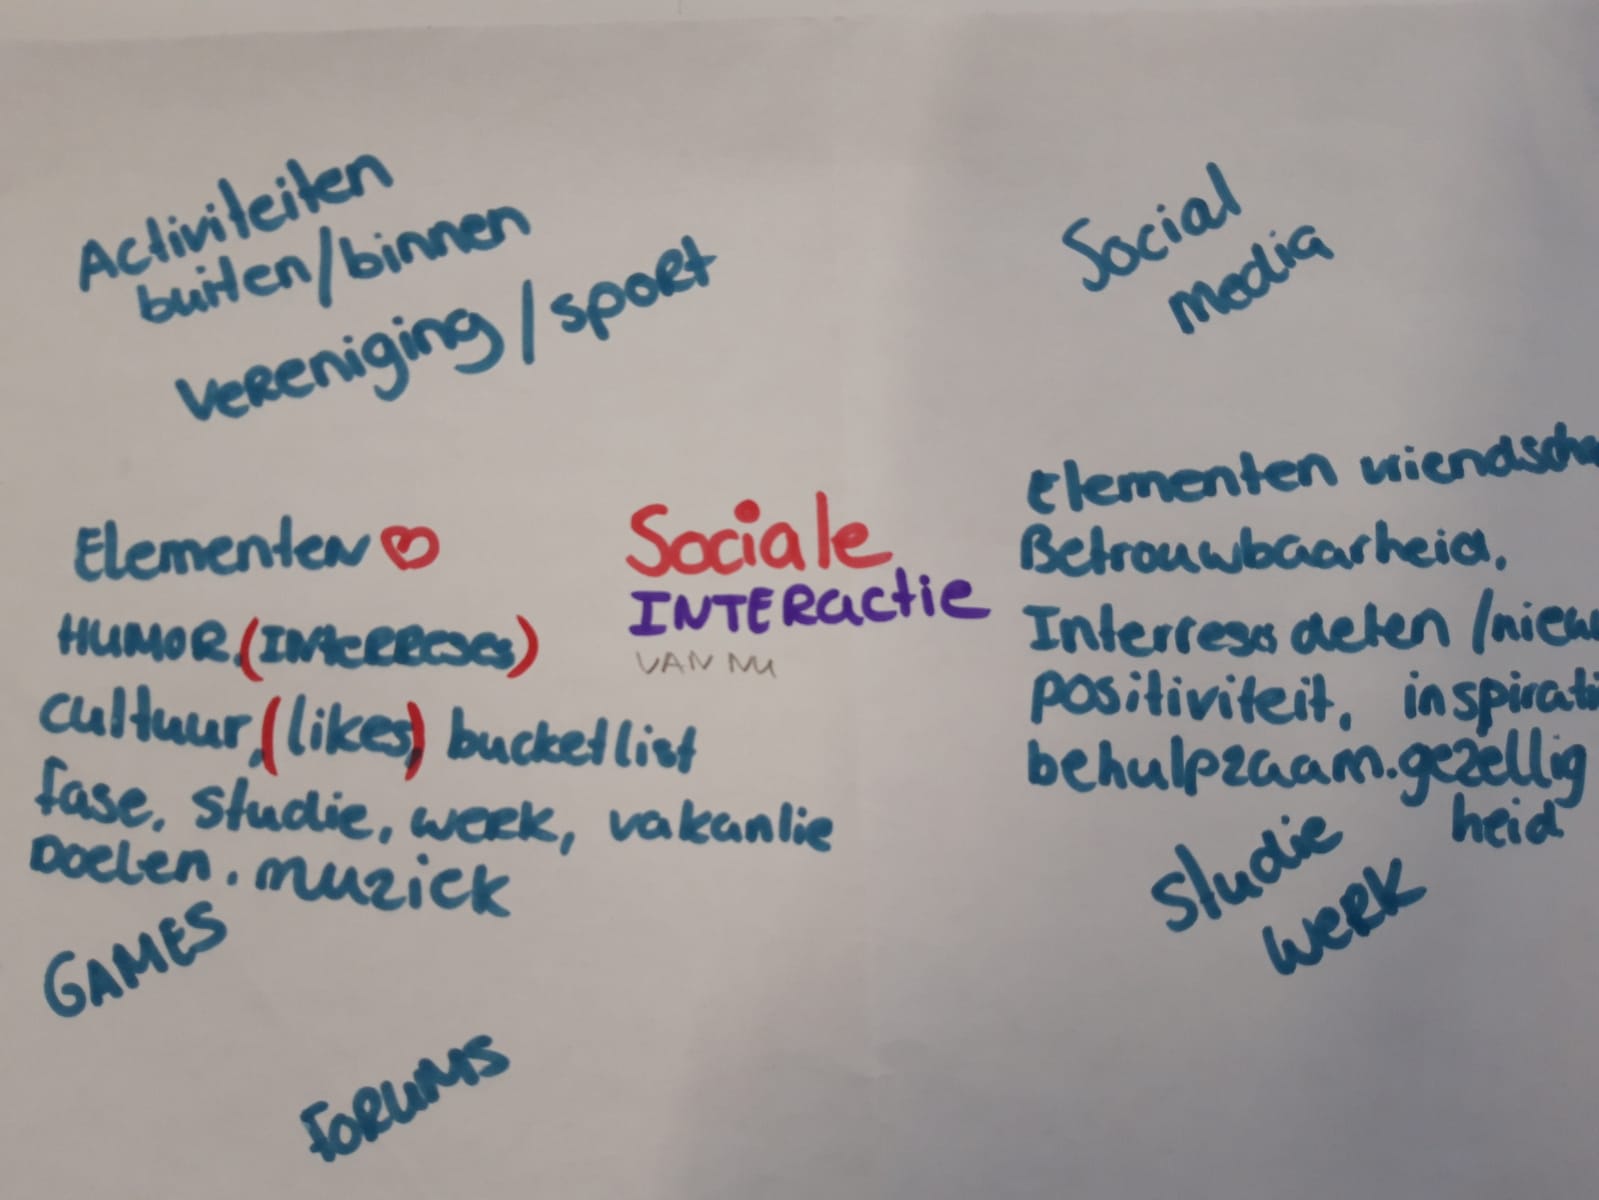 Activiteiten
buiten/binnen
vereniging/sport
Social
media
Elementen
Humor, (Interreses)
cultuur, (likes) bucketlist
fase, studie, werk, vakantie
Doelen. muzick
GAMES
FORUMS
Sociale
INTERactie
VAN NU
Elementen
Betrouwbaarheid,
Interreses delen /
positiviteit,
behulpzaam. gezellig
heid
Studie
werk